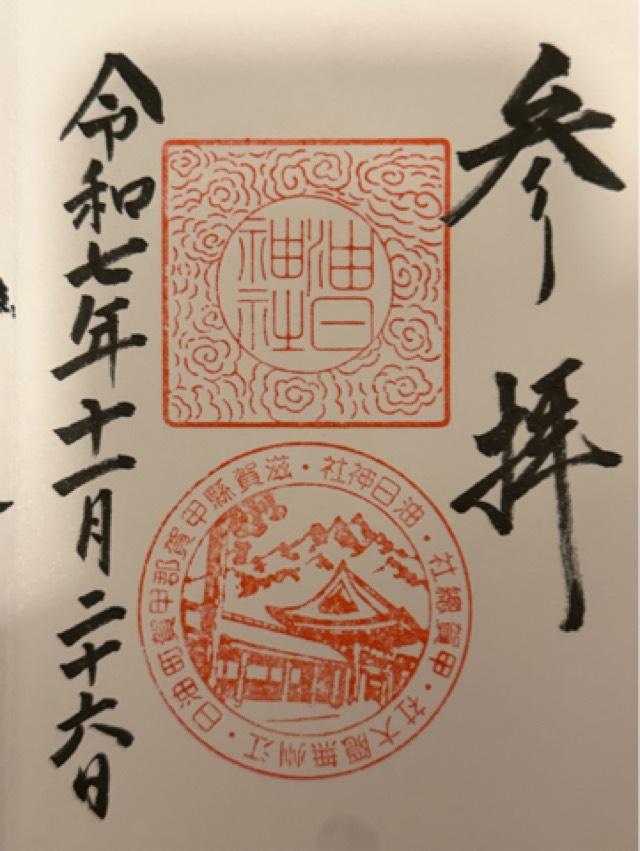 参拝
油日
神社
油日神社・滋賀縣甲賀郡甲賀町油日・江州無大社・甲賀總社
令和七年十一月二十六日